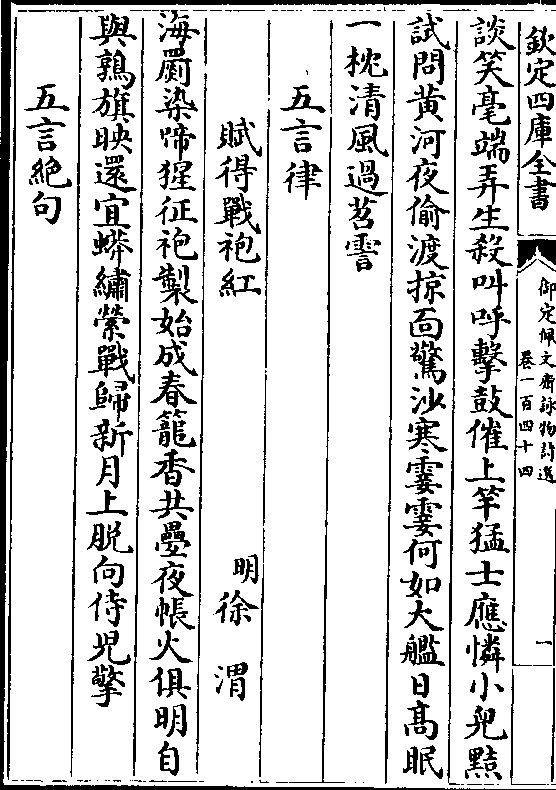 欽定四庫全書
御定佩文齋詠物詩選
卷一百四十四
一
談笑毫端弄生殺叫呼擊鼓催上竿猛士應憐小兒黠
試問黃河夜偷渡掠面驚沙寒霎霎何如大艦日髙眠
一枕清風過苕霅
五言律
賦得戰袍紅
明徐渭
海罽染啼猩征袍製始成春籠香共疊夜帳火俱明自
與鶉旗映還宜蟒繡縈戰歸新月上脱向侍兒擎
五言絶句